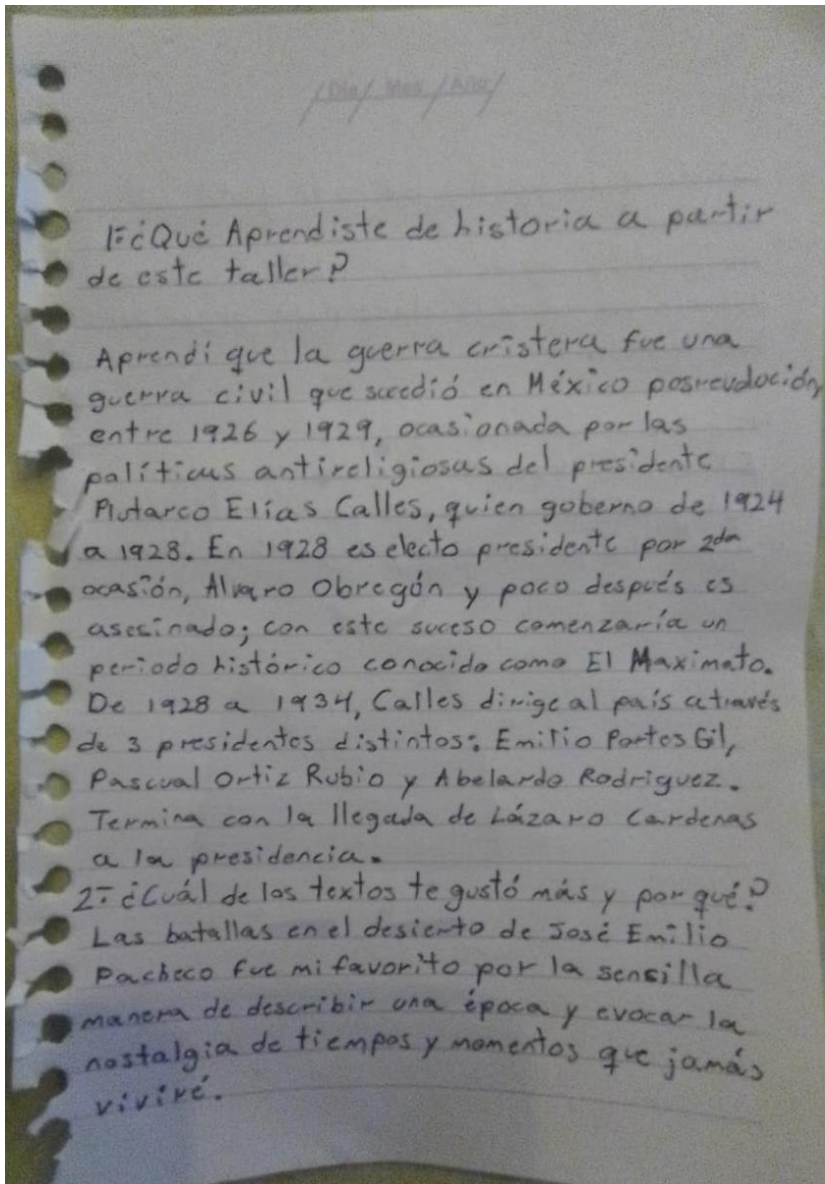 /Día/ Mes /Año/
1-¿Qué Aprendiste de historia a partir
de este taller?
Aprendí que la guerra cristera fue una
guerra civil que sucedió en México posrevolución,
entre 1926 y 1929, ocasionada por las
políticas antireligiosas del presidente
Plutarco Elías Calles, quien goberno de 1924
a 1928. En 1928 es electo presidente por 2da
ocasión, Alvaro Obregón y poco después es
asesinado; con este suceso comenzaría un
periodo histórico conocido como El Maximato.
De 1928 a 1934, Calles dirige al país através
de 3 presidentes distintos: Emilio Portes Gil,
Pascual Ortiz Rubio y Abelardo Rodriguez.
Termina con la llegada de Lázaro Cardenas
a la presidencia.
2-¿Cuál de los textos te gustó más y por qué?
Las batallas en el desierto de José Emilio
Pacheco fue mi favorito por la sensilla
manera de describir una época y evocar la
nostalgia de tiempos y momentos que jamás
viviré.